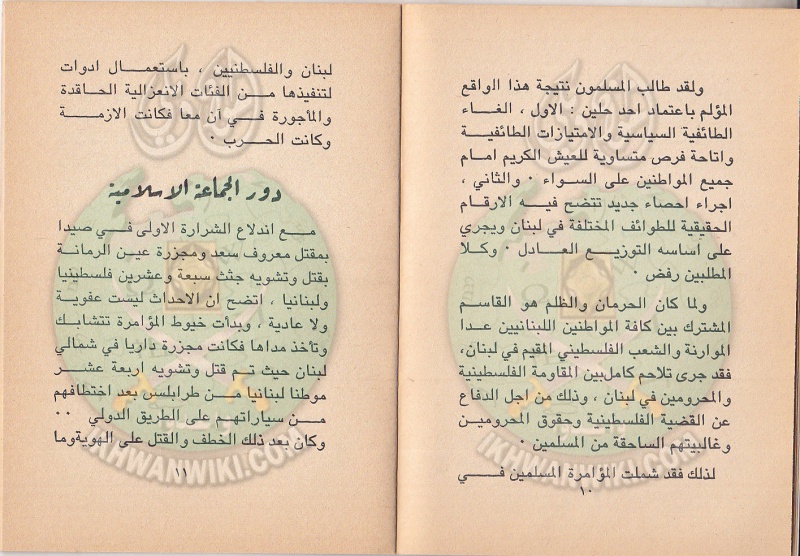 ولقد طالب المسلمون نتيجة هذا الواقع
المؤلم باعتماد احد حلين : الاول ، الغاء
الطائفية السياسية والامتيازات الطائفية
واتاحة فرص متساوية للعيش الكريم امام
جميع المواطنين على السواء . والثاني ،
اجراء احصاء جديد تتضح فيه الارقام
الحقيقية للطوائف المختلفة في لبنان ويجري
على اساسه التوزيع العادل . وكلا
المطلبين رفض .
ولما كان الحرمان والظلم هو القاسم
المشترك بين كافة المواطنين اللبنانيين عدا
الموارنة والشعب الفلسطيني المقيم في لبنان،
فقد جرى تلاحم كامل بين المقاومة الفلسطينية
والمحرومين في لبنان ، وذلك من اجل الدفاع
عن القضية الفلسطينية وحقوق المحرومين
وغالبيتهم الساحقة من المسلمين .
لذلك فقد شملت المؤامرة المسلمين في
١٠
لبنان والفلسطينيين ، باستعمال ادوات
لتنفيذها من الفئات الانعزالية الحاقدة
والمأجورة في آن معا فكانت الازمة
وكانت الحرب .
دور الجماعة الاسلامية
مع اندلاع الشرارة الاولى في صيدا
بمقتل معروف سعد ومجزرة عين الرمانة
بقتل وتشويه جثث سبعة وعشرين فلسطينيا
ولبنانيا ، اتضح ان الاحداث ليست عفوية
ولا عادية ، وبدأت خيوط المؤامرة تتشابك
وتأخذ مداها فكانت مجزرة داريا في شمالي
لبنان حيث تم قتل وتشويه اربعة عشر
موطنا لبنانيا من طرابلس بعد اختطافهم
من سياراتهم على الطريق الدولي ..
وكان بعد ذلك الخطف والقتل على الهويةوما
١١
IKHWANWIKI.COM
IKHWANWIKI.COM